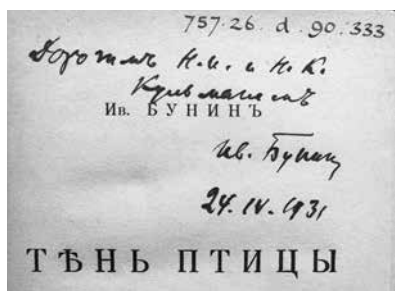 757.26.d.90.333
Дорогимъ Н.И. и Н.К.
Кульманамъ
Ив. БУНИНЪ
Ив. Бунин
24.IV.1931
ТѢНЬ ПТИЦЫ